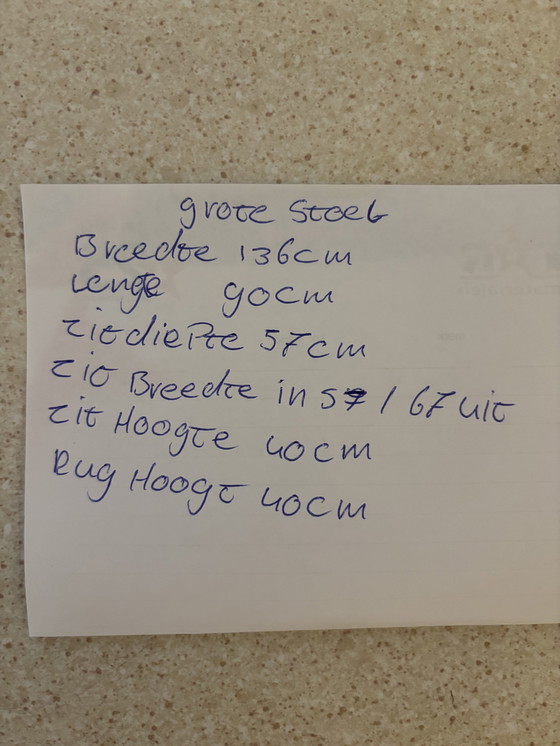 grote Stoel
Breedte 136cm
Lengte 90cm
zitdiepte 57cm
zit Breedte in 57 / 67 uit
zit Hoogte 40cm
Rug Hoogt 40cm